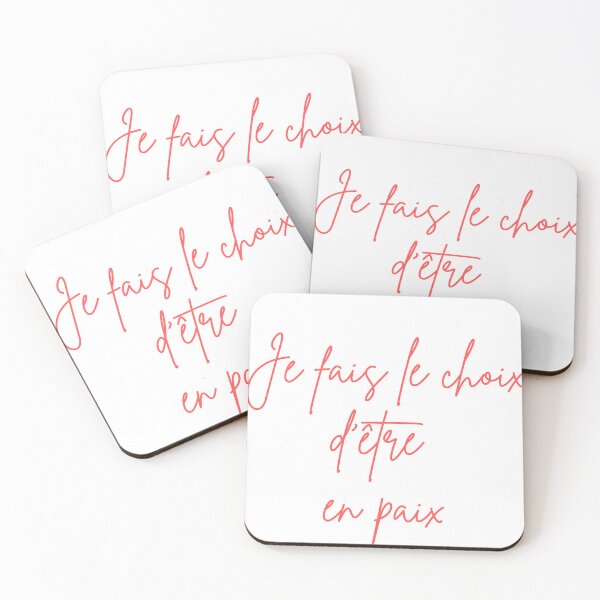 Je fais le choix
Je fais le choix
d'être
Je fais le choix
d'être
en
Je fais le choix
d'être
en paix